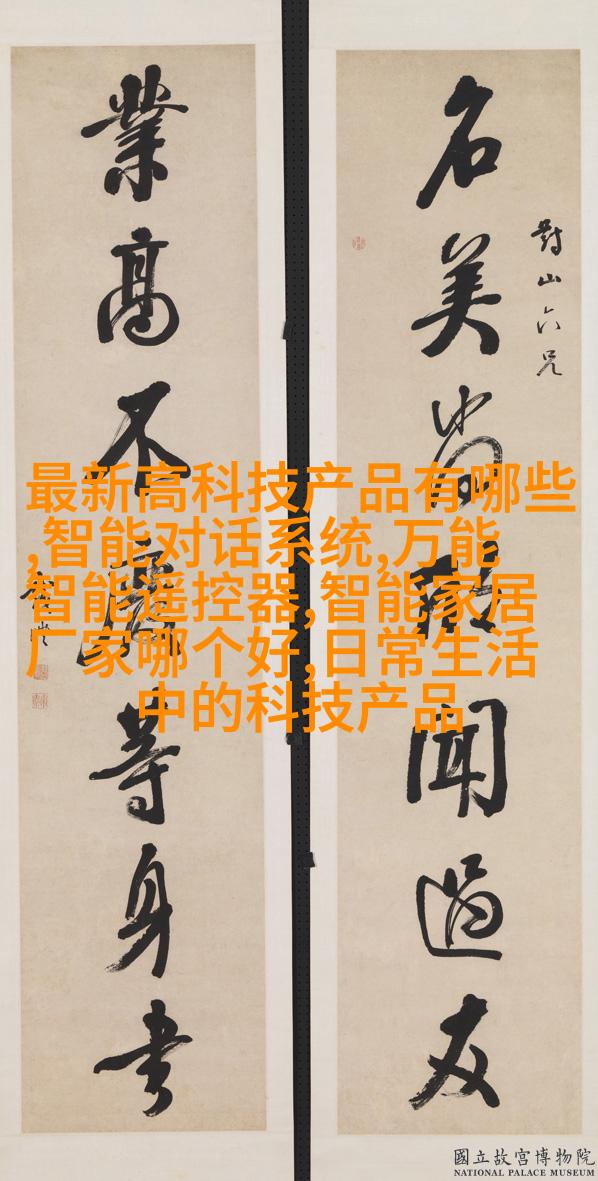 對山六兄
名美尚欣聞過友
業高不廢等身書
最新高科技产品有哪些
,智能对话系统,万能
智能遥控器,智能家居
厂家哪个好,日常生活
中的科技产品
國立故宮博物院
NATIONAL PALACE MUSEUM